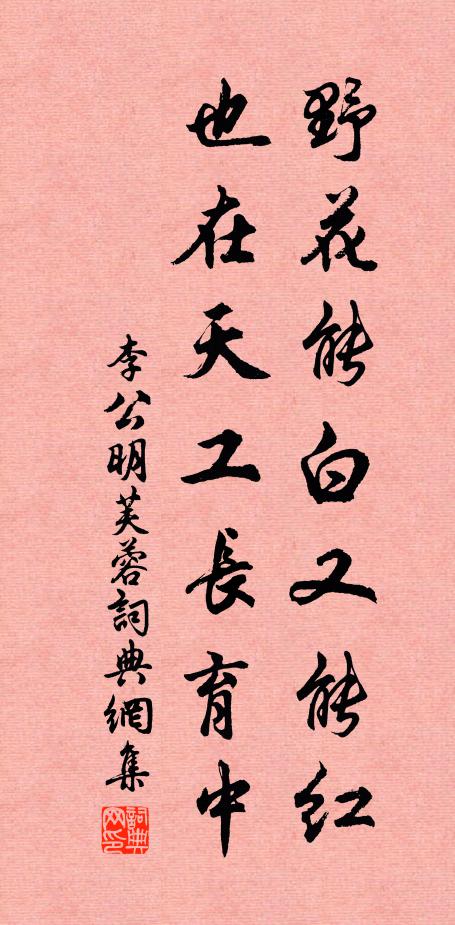 野花能白又能紅
也在天工長育中
李公明芙蓉詞典網集
詞典网印